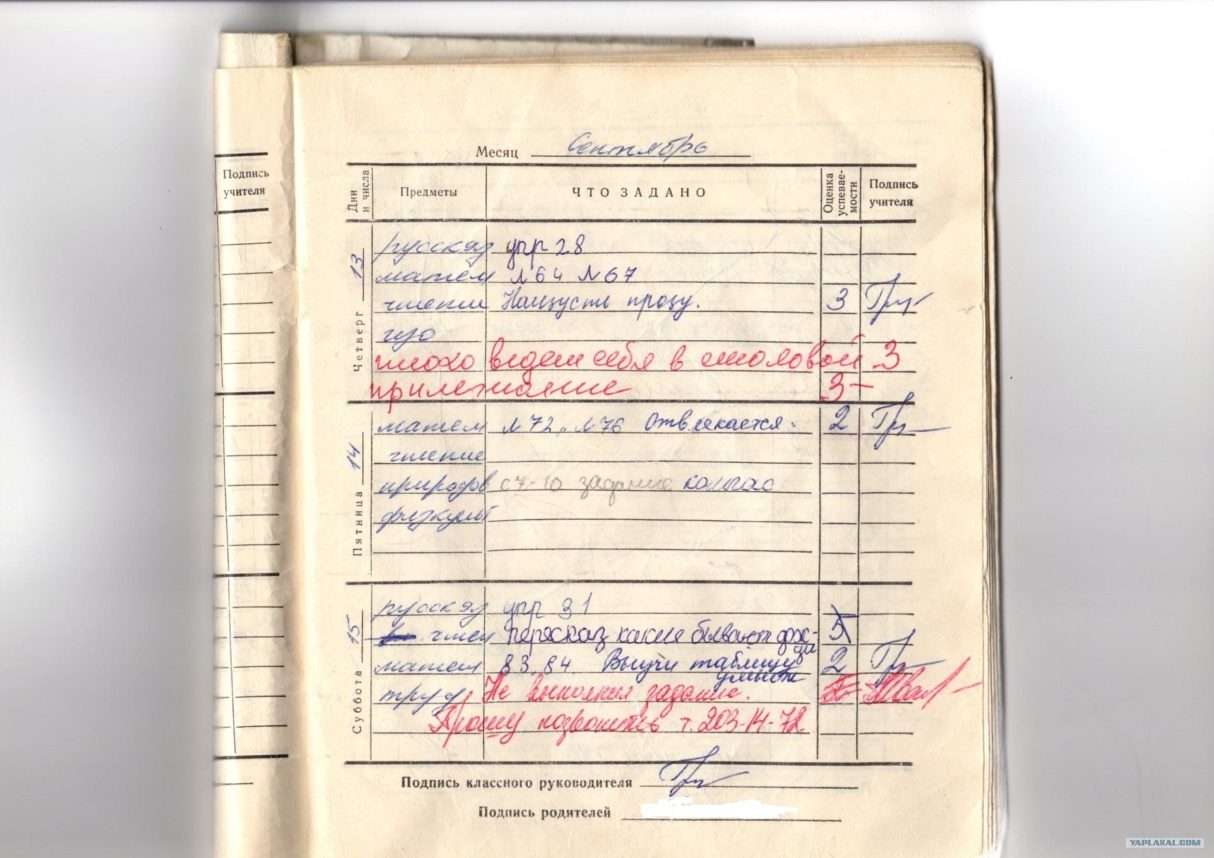 Подпись учителя
Месяц Сентябрь
Дни и числа Предметы ЧТО ЗАДАНО Оценка успевае-мости Подпись учителя
Четверг 13
русск яз упр 28
матем №64 №67
чтение Наизусть прозу. 3
изо
плохо ведет себя в столовой 3
прилежание 3-
Пятница 14
матем №72, №76 Отвлекается. 2
чтение
природов с 7-10 задание компас
физкульт
Суббота 15
русск яз упр 31
чтен пересказ какие бывают дож-ди 5
матем 83, 84 Выучи таблицу умнож 2
труд Не выполнил задание.
Прошу позвонить т. 203-14-72
Подпись классного руководителя
Подпись родителей
YAPLAKAL.COM